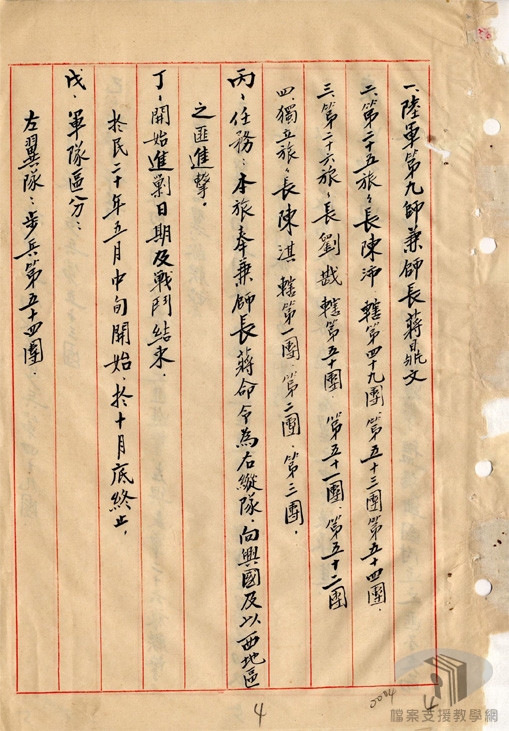 一、陸軍第九師兼師長蔣鼎文
二、第二十五旅々長陳沛轄第四十九團、第五十三團第五十四團.
三、第二十六旅々長劉戡轄第五十團、第五十一團、第五十二團
四、獨立旅々長陳淇轄第一團、第二團、第三團.
丙、任務：本旅奉兼師長蔣命令為右縱隊.向興國及以西地區
之匪進擊.
丁、開始進剿日期及戰鬥結束.
於民二十年五月中旬開始.於十月底終止.
戊、軍隊區分：
左翼隊：步兵第五十四團.
4
0084
4
檔案支援教學網